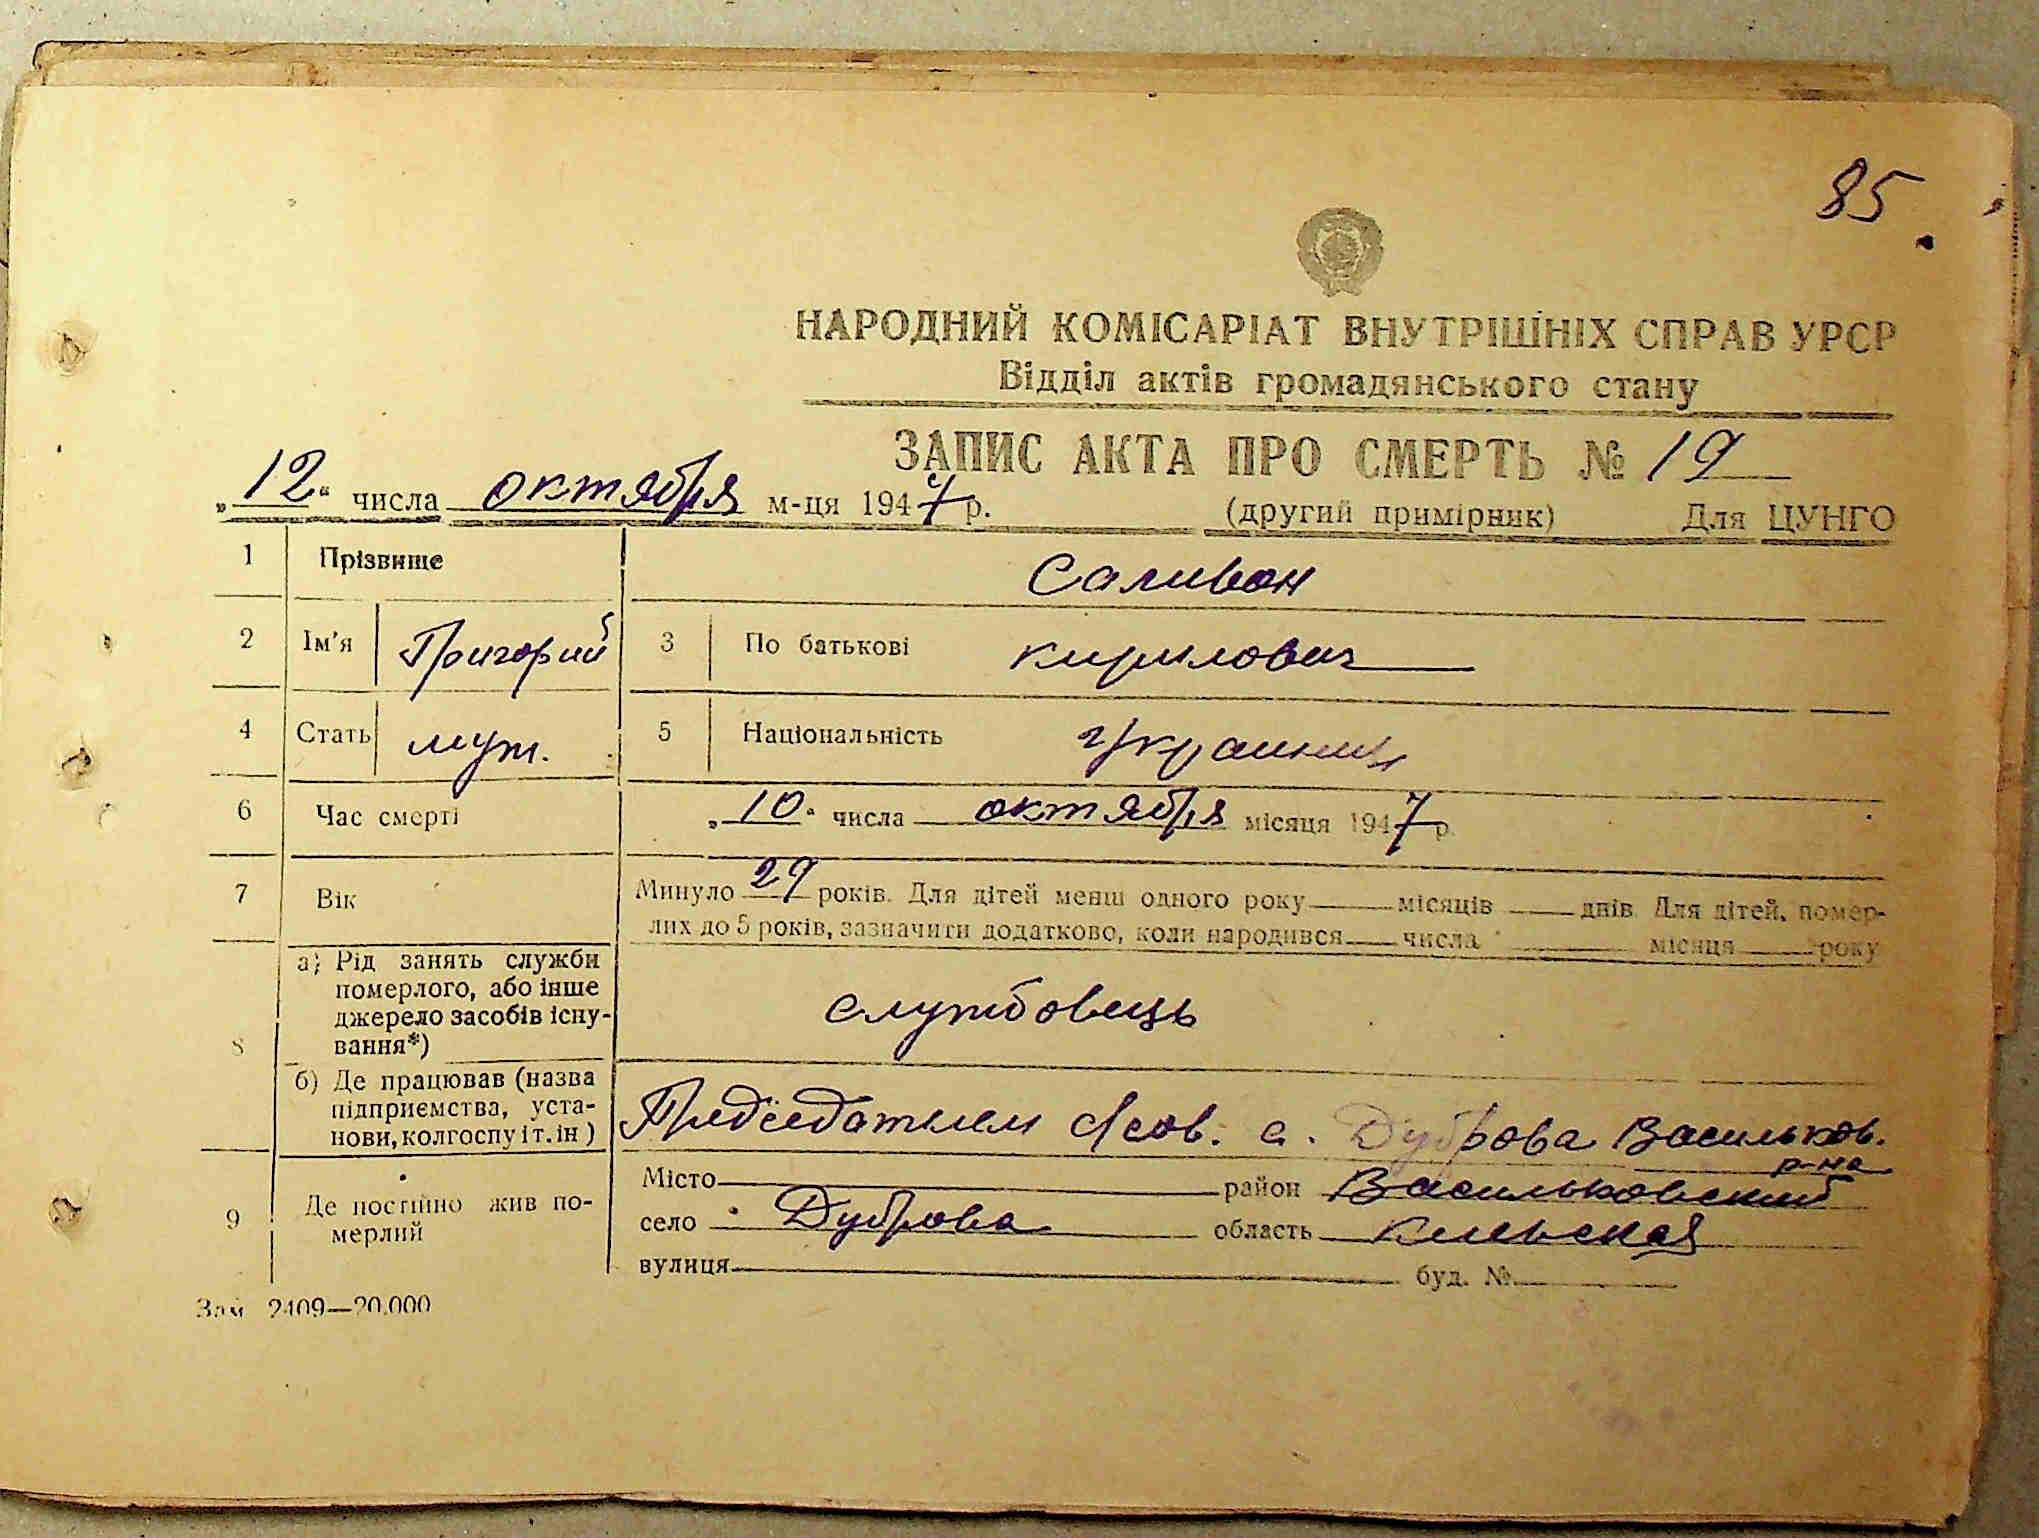 85
НАРОДНИЙ КОМІСАРІАТ ВНУТРІШНІХ СПРАВ УРСР
Відділ актів громадянського стану
ЗАПИС АКТА ПРО СМЕРТЬ № 19
„12“ числа октября м-ця 1947 р.
(другий примірник) Для ЦУНГО
1 Прізвище Саливон
2 Ім'я Григорий 3 По батькові Кирилович
4 Стать муж. 5 Національність украинец
6 Час смерті „10“ числа октября місяця 1947 р.
7 Вік Минуло 29 років. Для дітей менш одного року місяців днів. Для дітей, помер-
лих до 5 років, зазначити додатково, коли народився числа місяця року
8 а) Рід занять служби
померлого, або інше
джерело засобів існу-
вання*)
службовець
б) Де працював (назва
підприємства, уста-
нови, колгоспу і т. ін)
Председателем с/сов. с. Дуброва Васильков.
р-на
9 Де постійно жив по-
мерлий
Місто район Васильковский
село Дуброва область Киевская
вулиця буд. №
Зам 2409—20.000